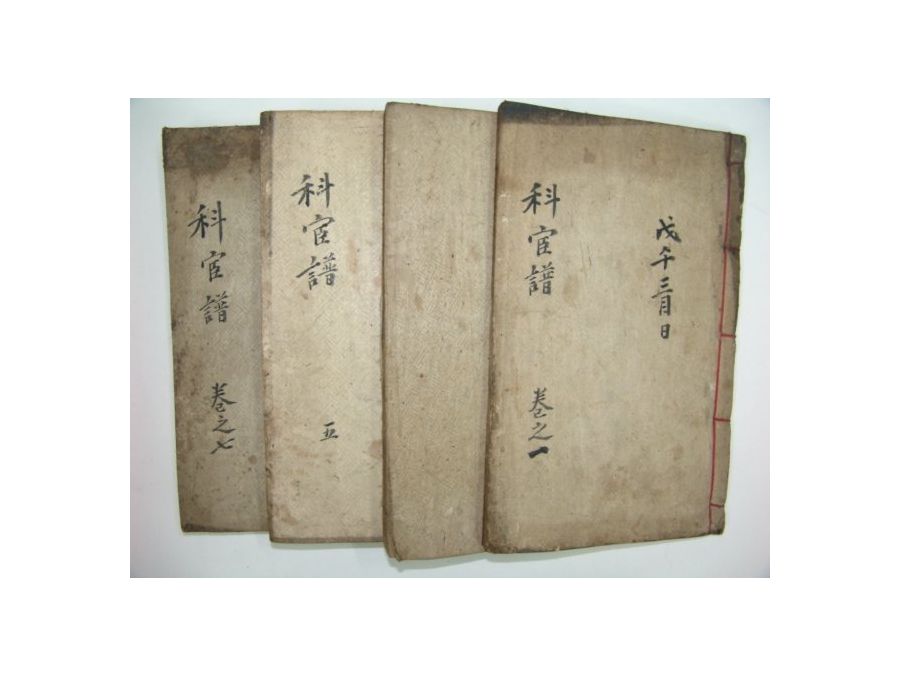 戊午三月日
科宦譜
卷之一
科宦譜
五
科宦譜
卷之七